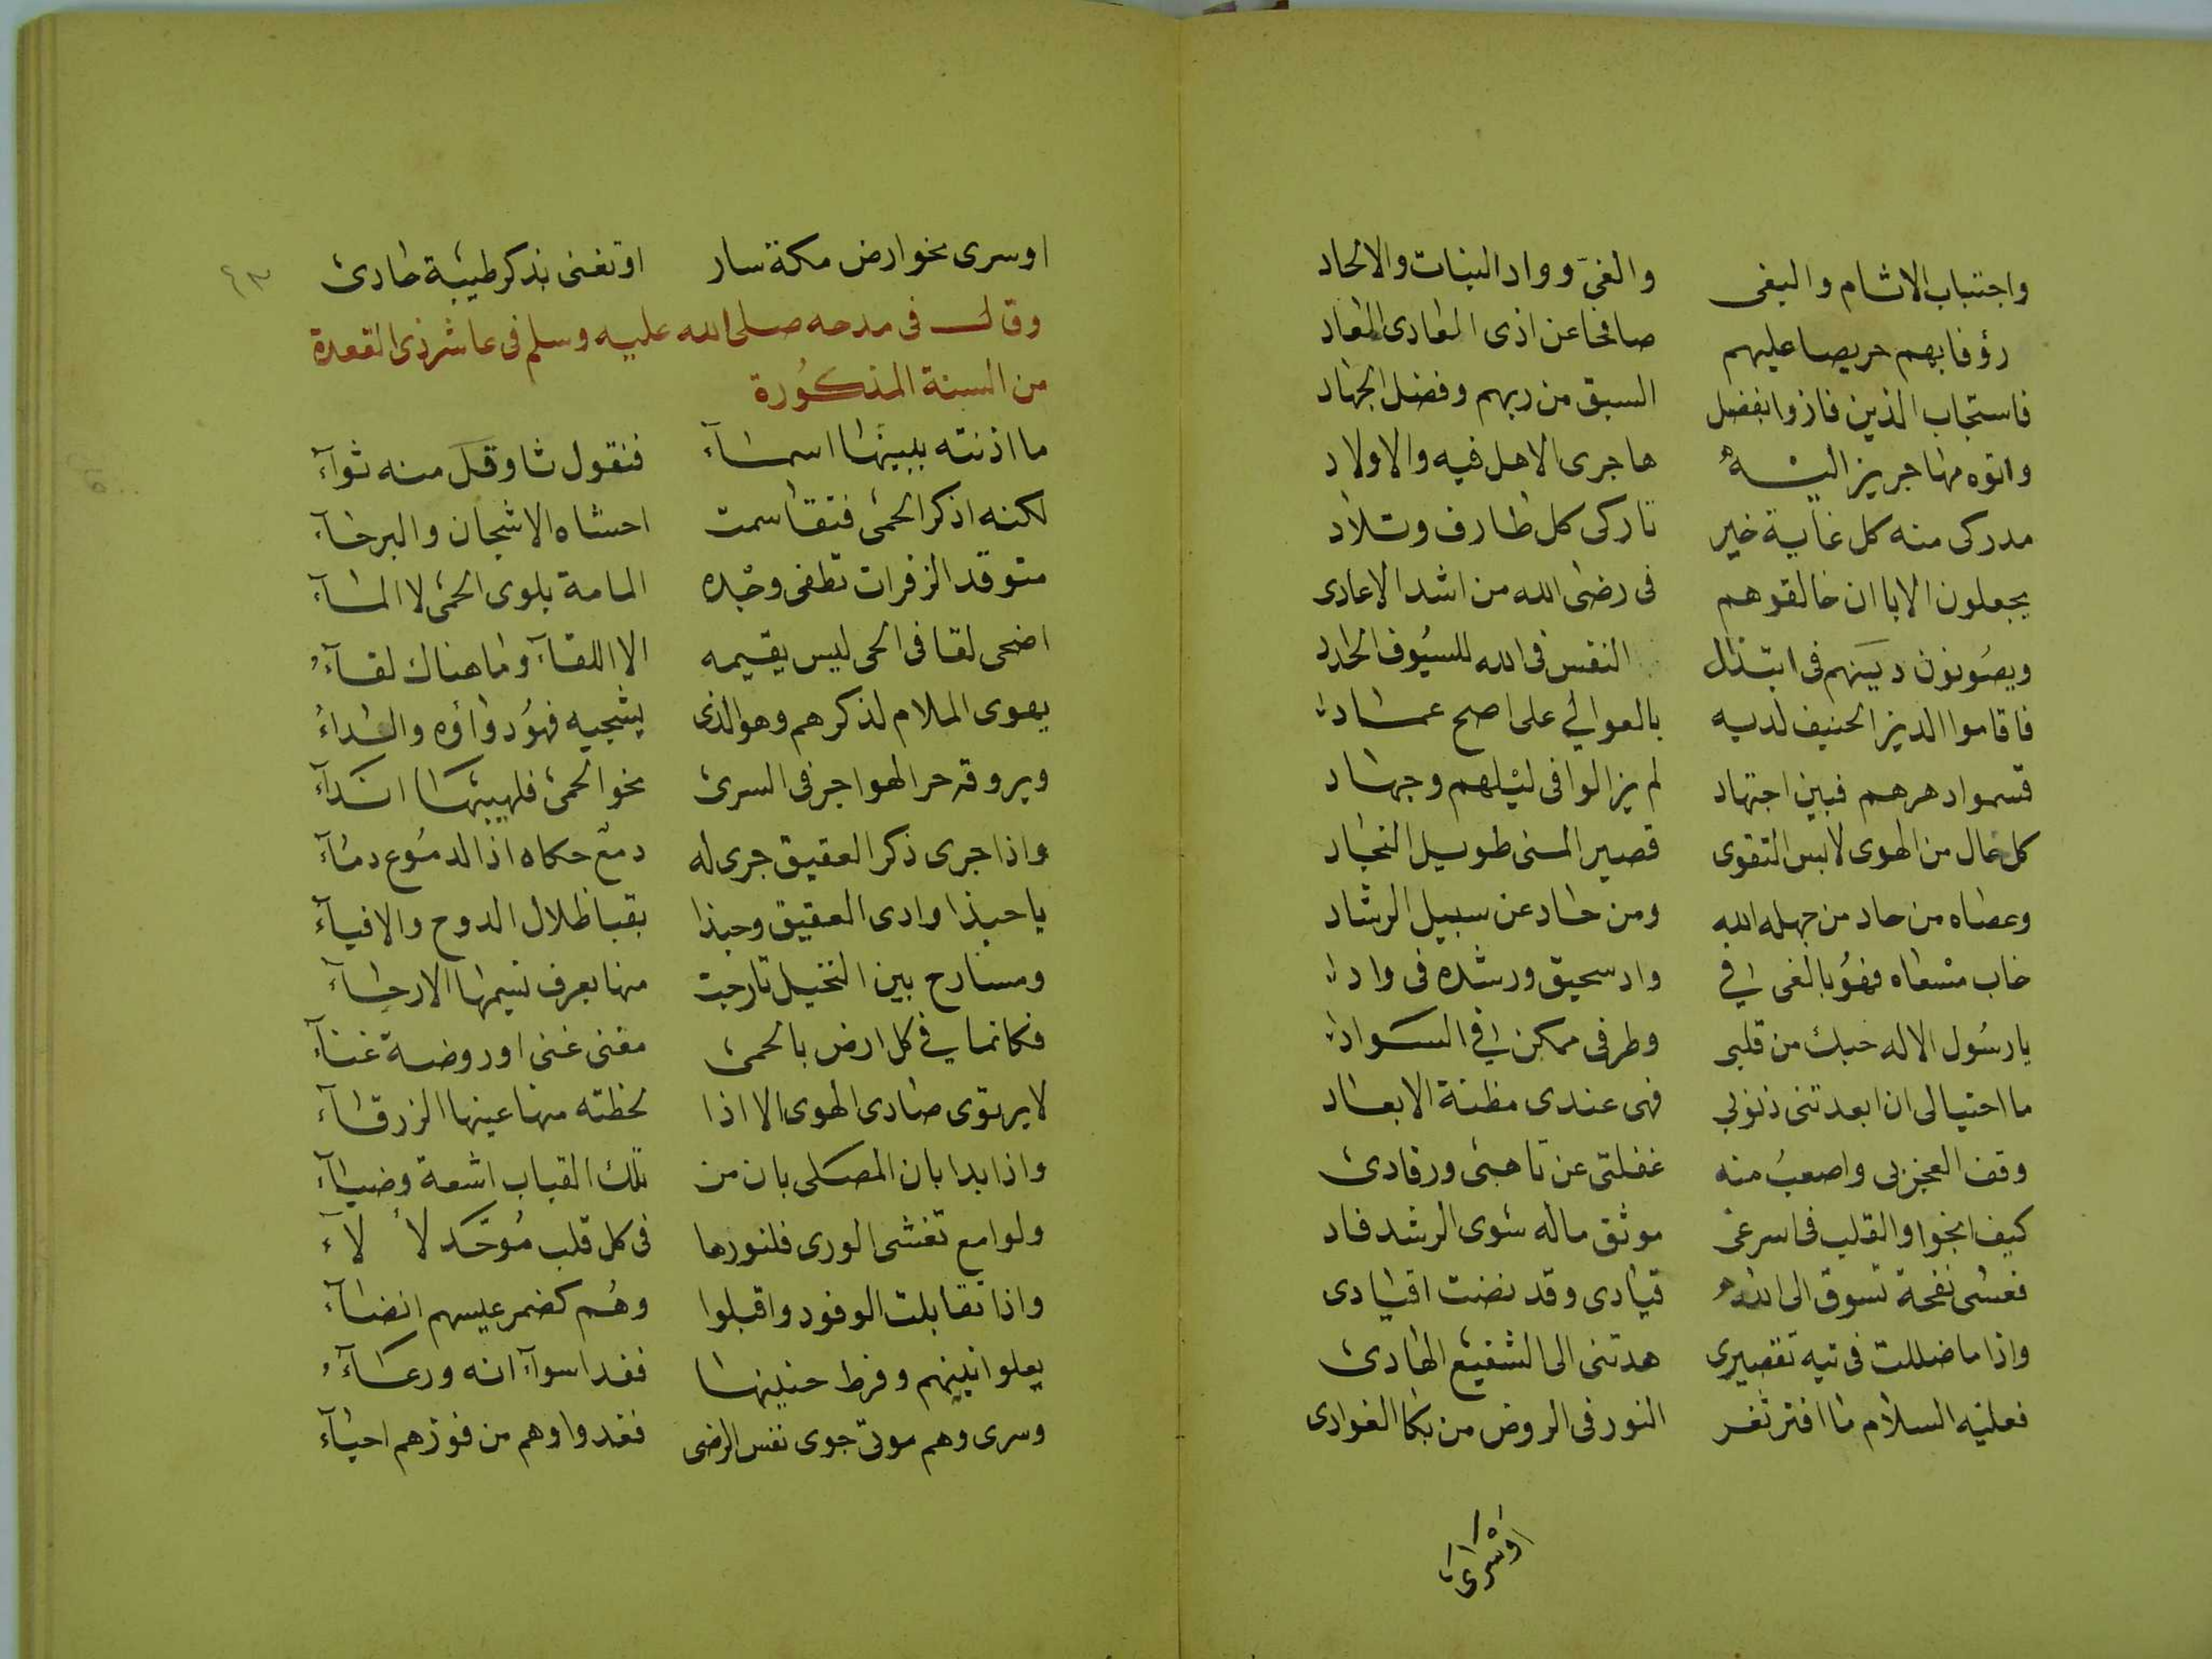 واجتناب الاثام والبغى والغى وواد البنات والالحاد
رؤفا بهم حريصا عليهم صافحا عن اذى المعادى المعاد
فاستجاب الذين فازوا بفضل السبق من ربهم وفضل الجهاد
واتوه مهاجرين الى الله هاجرى الاهل فيه والاولاد
مدركى منه كل غاية خير تاركى كل طارف وتلاد
يجعلون الابا ان خالفوهم فى رضى الله من اشد الاعادى
ويصونون دينهم فى ابتذال النفس فى الله للسيوف الحداد
فاقاموا الدين الحنيف لديه بالعوالي على اصح عماد
قسموا دهرهم فبين اجتهاد لم يزالوا فى ليلهم وجهاد
كل خال من الهوى لابس التقوى قصير المنى طويل النجاد
وعصاه من حاد من جهله الله ومن حاد عن سبيل الرشاد
خاب مسعاه فهو بالغى في واد سحيق ورشده فى واد
يا رسول الاله حبك من قلبى وطرفى ممكن في السواد
ما احتيالى ان ابعدتنى ذنوبي فهى عندى مظنة الابعاد
وقف العجز بى واصعب منه غفلتى عن تاهبى ورقادى
كيف انجوا والقلب فى اسر غى موثق ماله سوى الرشد فاد
فعسى نفحة تسوق الى الله قيادى وقد نضت اقيادى
واذا ما ضللت فى تيه تقصيرى هدتنى الى الشفيع الهادى
فعليه السلام ما افتر ثغر النور فى الروض من بكا الغوادى
اوسرى
اوسرى نحو ارض مكة سار اوتغنى بذكر طيبة حادى
وقال فى مدحه صلى الله عليه وسلم فى عاشر ذى القعدة
من السنة المذكورة
ما اذنته ببينها اسماء فنقول ثاو قل منه ثواء
لكنه اذكر الحمى فتقاسمت احشاه الاشجان والبرحاء
متوقد الزفرات تطفى وجده المامة بلوى الحمى لا الماء
اضحى لقا فى الحى ليس يقيمه الا اللقاء وما هناك لقاء
يهوى الملام لذكرهم وهو الذى يشجيه فهو دواؤه والداء
ويروقه حر الهواجر فى السرى نحو الحمى فلهيبها انداء
واذا جرى ذكر العقيق جرى له دمع حكاه اذ الدموع دماء
يا حبذا وادى العقيق وحبذا بقبا ظلال الدوح والافياء
ومسارح بين النخيل تارجت منها بعرف نسيمها الارجاء
فكانما في كل ارض بالحمى مغنى غنى او روضة غناء
لا يرتوى صادى الهوى الا اذا لحظته منها عينها الزرقاء
واذا بدا بان المصلى بان من تلك القباب اشعة وضياء
ولوامع تغشى الورى فلنورها فى كل قلب موحد لالاء
واذا تقابلت الوفود واقبلوا وهم كضمر عيسهم انضاء
يعلو انينهم وفرط حنينها فغدا سواء انه ورغاء
وسرى وهم موتى جوى نفس الرضى فغدوا وهم من فوزهم احياء